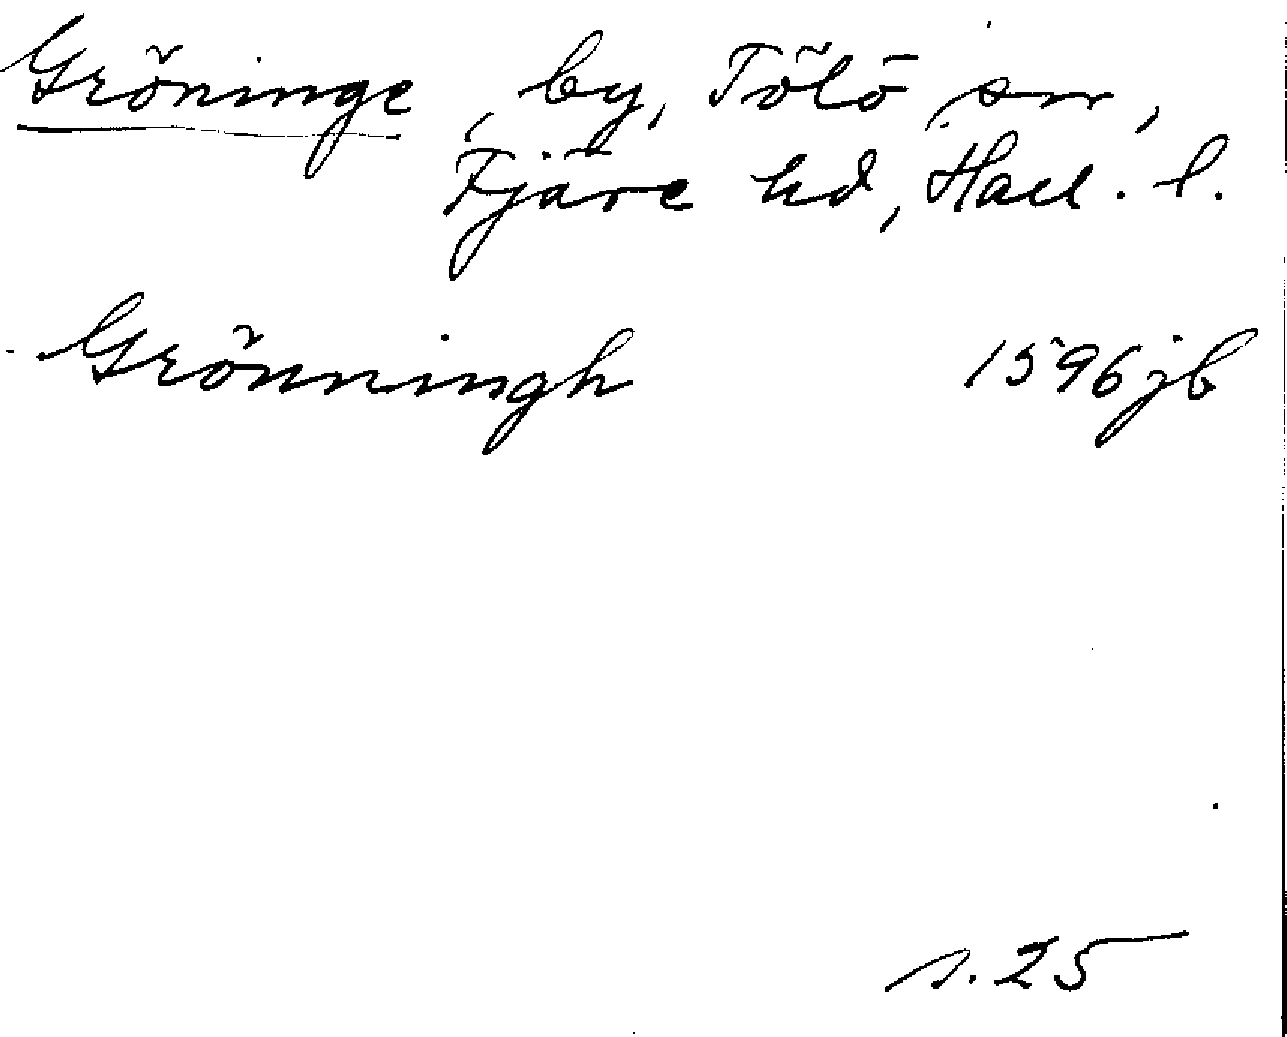 Gröninge, by, Tölö sn,
Fjäre hd, Hall. l.
Grönningh 1596 jb
s. 25